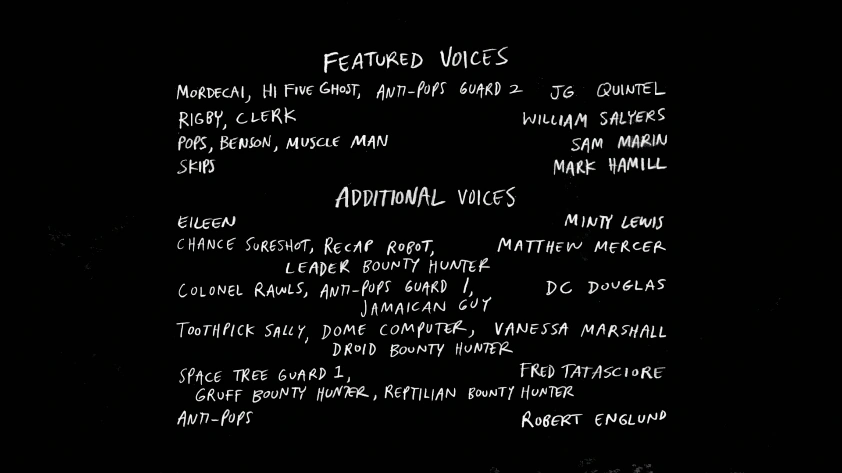 FEATURED VOICES
MORDECAI, HI FIVE GHOST, ANTI-POPS GUARD 2 JG QUINTEL
RIGBY, CLERK WILLIAM SALYERS
POPS, BENSON, MUSCLE MAN SAM MARIN
SKIPS MARK HAMILL
ADDITIONAL VOICES
EILEEN MINTY LEWIS
CHANCE SURESHOT, RECAP ROBOT, MATTHEW MERCER
LEADER BOUNTY HUNTER
COLONEL RAWLS, ANTI-POPS GUARD 1, DC DOUGLAS
JAMAICAN GUY
TOOTHPICK SALLY, DOME COMPUTER, VANESSA MARSHALL
DROID BOUNTY HUNTER
SPACE TREE GUARD 1, FRED TATASCIORE
GRUFF BOUNTY HUNTER, REPTILIAN BOUNTY HUNTER
ANTI-POPS ROBERT ENGLUND